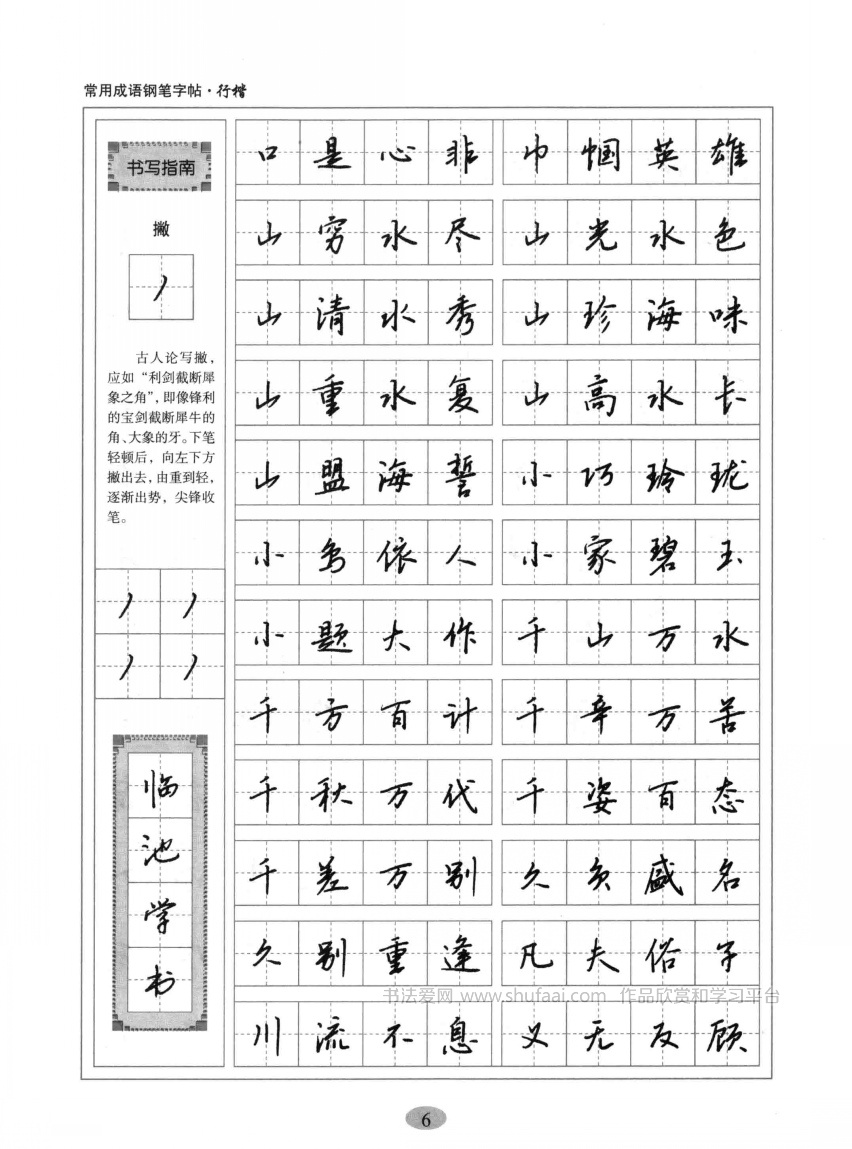 常用成语钢笔字帖·行楷
书写指南
撇
丿
古人论写撇，
应如“利剑截断犀
象之角”，即像锋利
的宝剑截断犀牛的
角、大象的牙。下笔
轻顿后，向左下方
撇出去，由重到轻，
逐渐出势，尖锋收
笔。
丿 丿
丿 丿
临池学书
口是心非 巾帼英雄
山穷水尽 山光水色
山清水秀 山珍海味
山重水复 山高水长
山盟海誓 小巧玲珑
小鸟依人 小家碧玉
小题大作 千山万水
千方百计 千辛万苦
千秋万代 千姿百态
千差万别 久负盛名
久别重逢 凡夫俗子
川流不息 义无反顾
书法爱网 www.shufaai.com 作品欣赏和学习平台
6